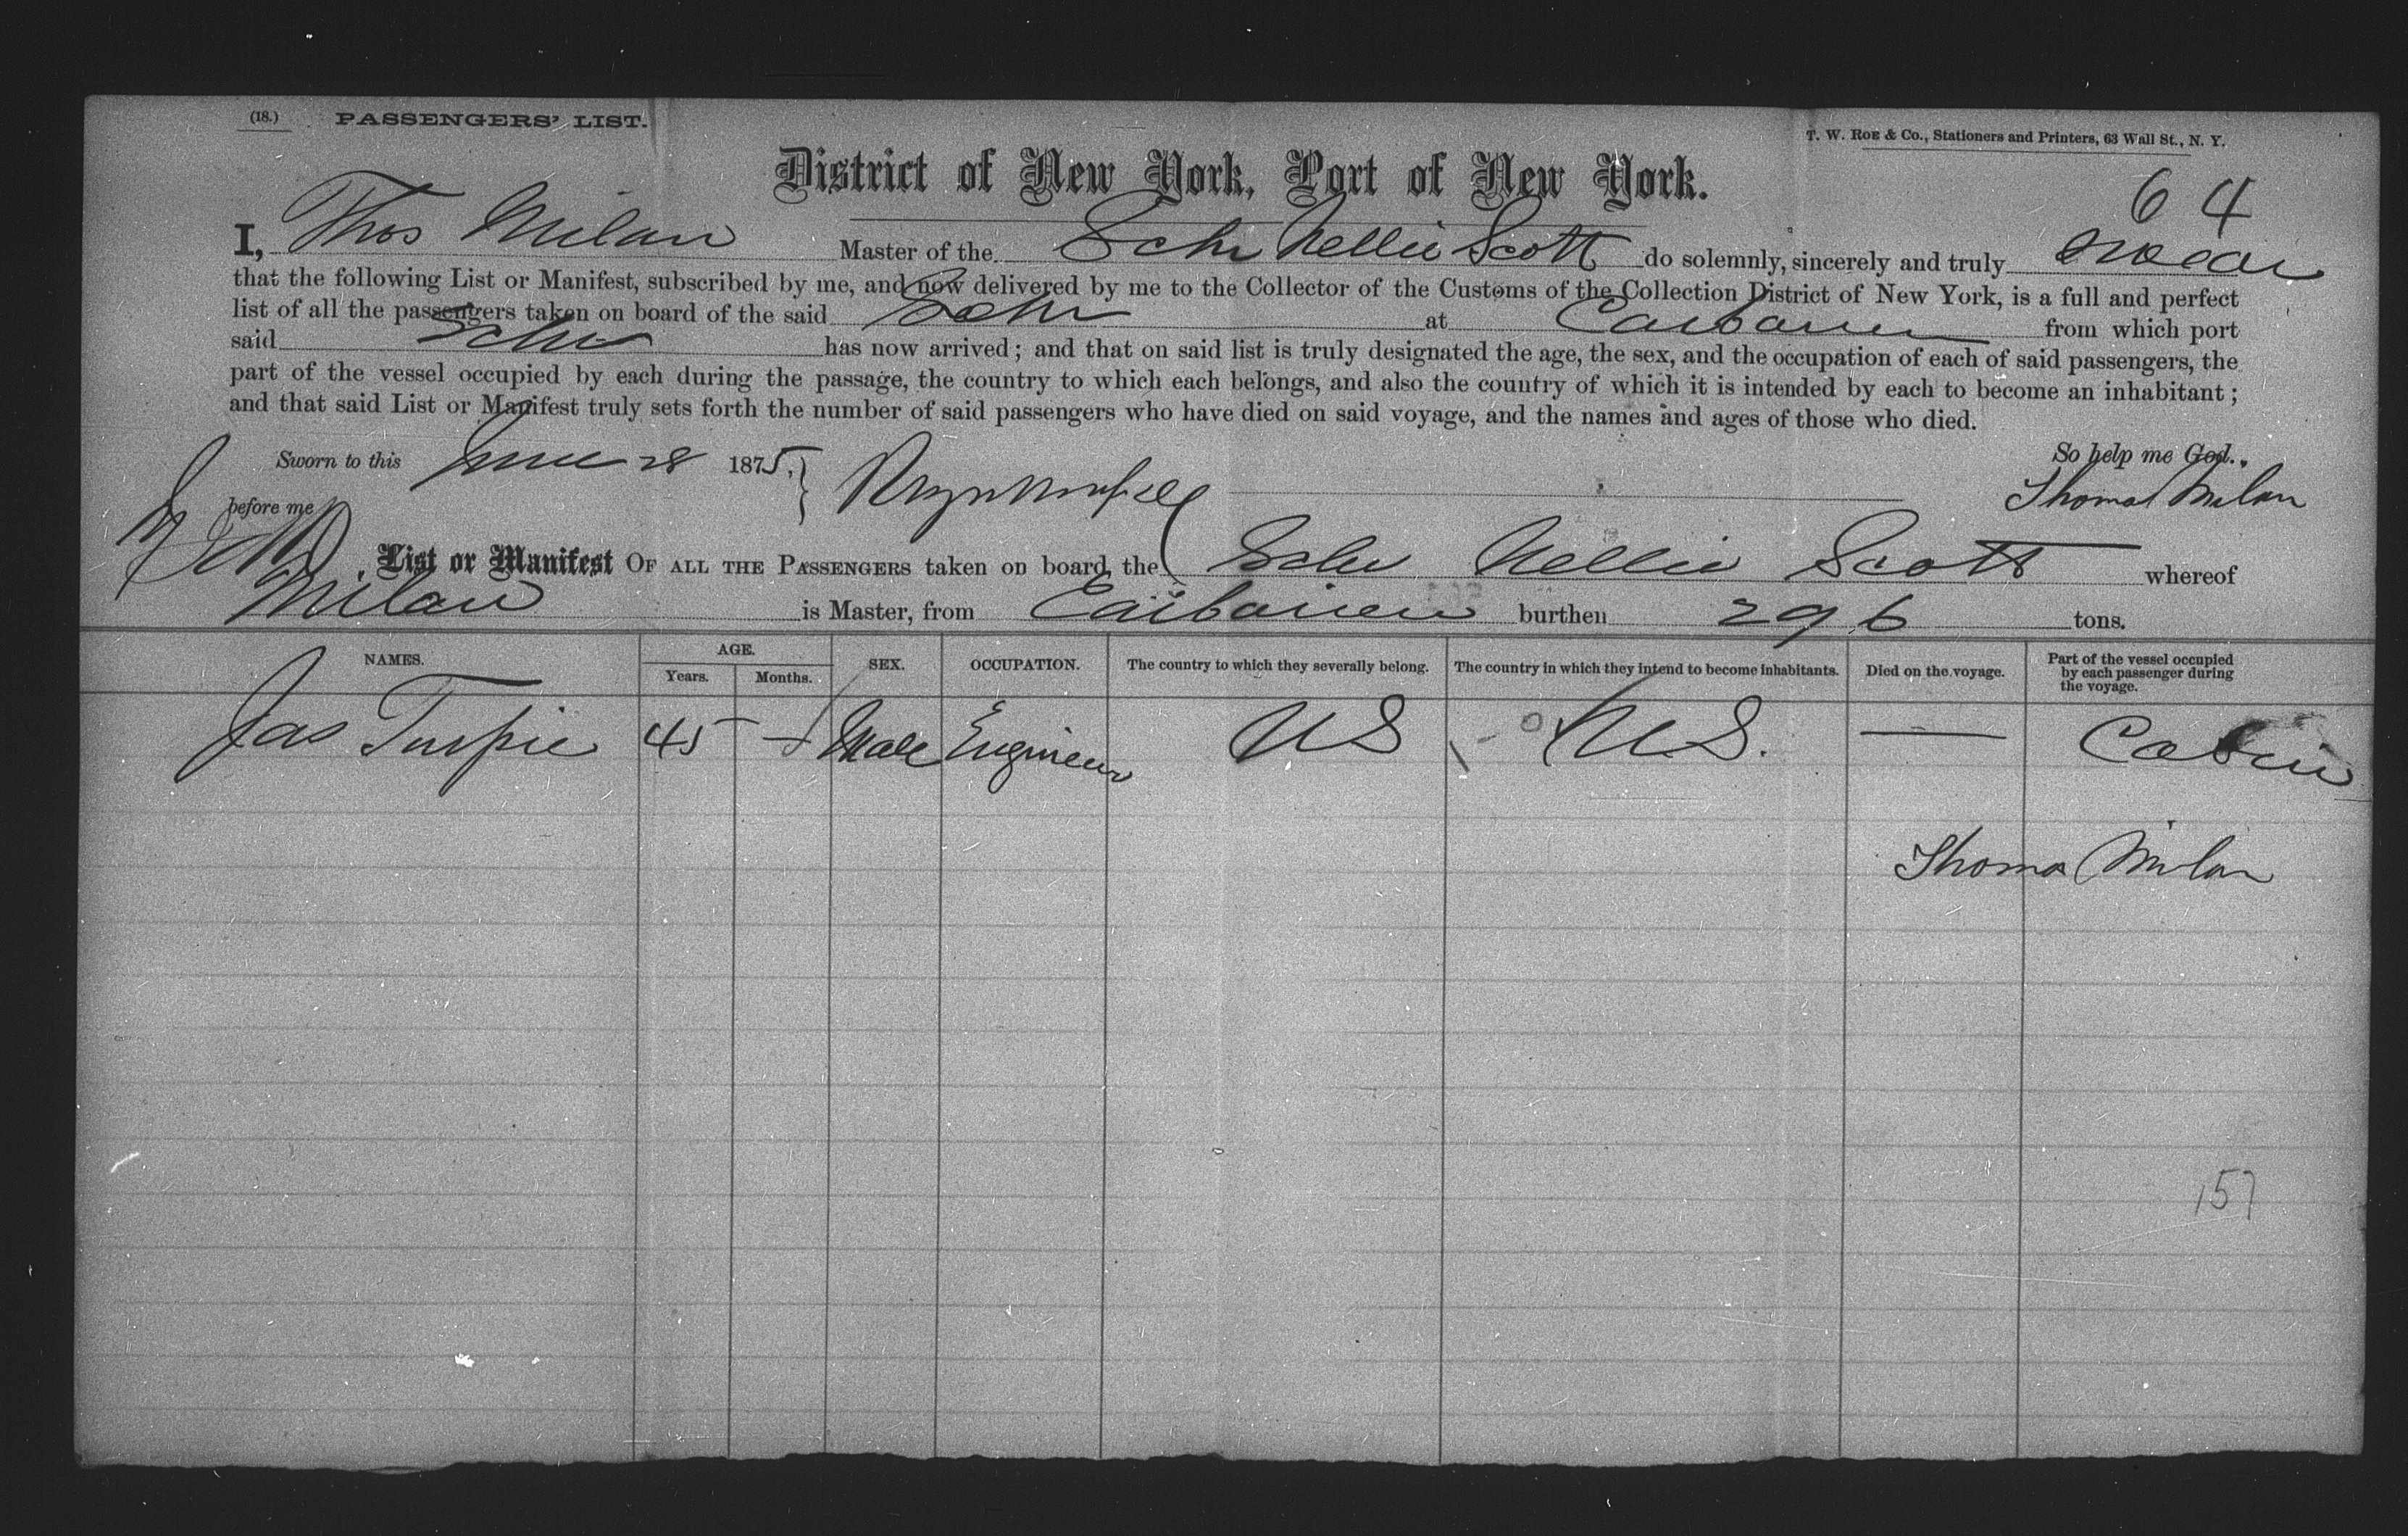 (18.) PASSENGERS' LIST.
T. W. ROE & Co., Stationers and Printers, 63 Wall St., N. Y.
District of New York, Port of New York.
64
I, Thos Milan Master of the Schr Nellie Scott do solemnly, sincerely and truly swear
that the following List or Manifest, subscribed by me, and now delivered by me to the Collector of the Customs of the Collection District of New York, is a full and perfect
list of all the passengers taken on board of the said Schr at Caibarien from which port
said Schr has now arrived; and that on said list is truly designated the age, the sex, and the occupation of each of said passengers, the
part of the vessel occupied by each during the passage, the country to which each belongs, and also the country of which it is intended by each to become an inhabitant;
and that said List or Manifest truly sets forth the number of said passengers who have died on said voyage, and the names and ages of those who died.
Sworn to this June 28 1875, So help me God.
before me Thomas Milan
List or Manifest OF ALL THE PASSENGERS taken on board the Schr Nellie Scott whereof
Milan is Master, from Caibarien burthen 296 tons.
NAMES. AGE. Years. Months. SEX. OCCUPATION. The country to which they severally belong. The country in which they intend to become inhabitants. Died on the voyage. Part of the vessel occupied by each passenger during the voyage.
Jas Turpie 45 — Male Engineer US U.S. — Cabin
Thomas Milan
157